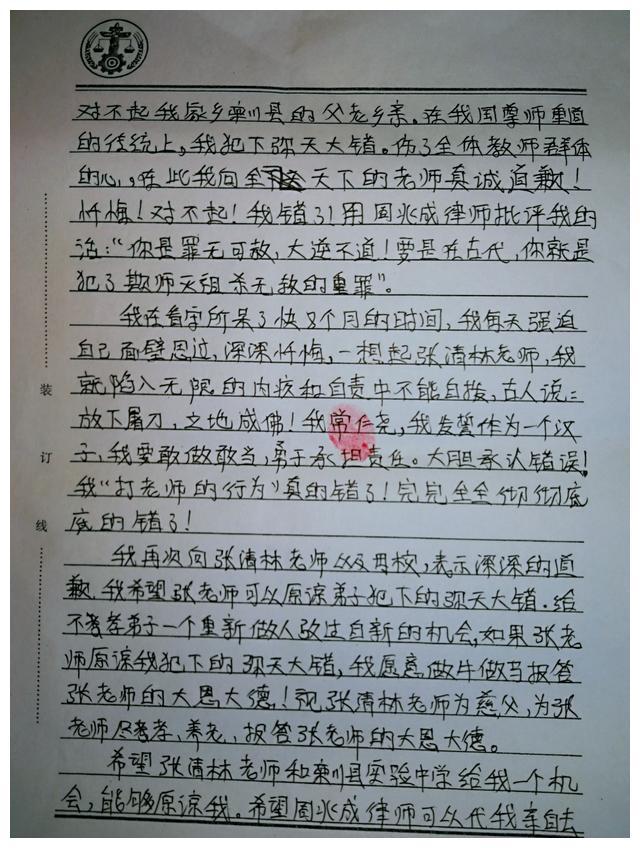 对不起我家乡栾川县的父老乡亲。在我国尊师重道
的传统上，我犯下弥天大错。伤了全体教师群体
的心，在此我向全天下的老师真诚道歉！
忏悔！对不起！我错了！用周兆成律师批评我的
话："你是罪无可赦，大逆不道！要是在古代，你就是
犯了欺师灭祖杀无赦的重罪"。
我在看守所呆了快8个月的时间，我每天强迫
自己面壁思过，深深忏悔，一想起张清林老师，我
就陷入无限的内疚和自责中不能自拨，古人说：
放下屠刀，立地成佛！我常仁尧，我发誓作为一个汉
子，我要敢做敢当，勇于承担责任。大胆承认错误！
我"打老师的行为"真的错了！完完全全彻彻底
底的错了！
我再次向张清林老师以及母校，表示深深的道
歉，我希望张老师可以原谅弟子犯下的弥天大错。给
不孝弟子一个重新做人改过自新的机会，如果张老
师原谅我犯下的弥天大错，我愿意做牛做马报答
张老师的大恩大德！视张清林老师为慈父，为张
老师尽孝，养老，报答张老师的大恩大德。
希望张清林老师和栾川县实验中学给我一个机
会，能够原谅我。希望周兆成律师可以代我亲自去
装
订
线